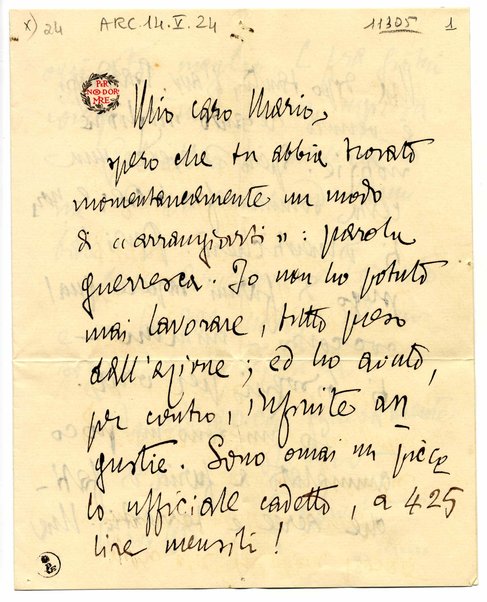 x) 24 ARC.14.V.24 11305 1
PER
NON DOR
MIRE
Mio caro Mario,
spero che tu abbia trovato
momentaneamente un modo
di "arrangiarti" : parola
guerresca. Io non ho potuto
mai lavorare, tutto preso
dall'azione ; ed ho avuto,
per contro, infinite an
gustie. Sono omai un picco
lo ufficiale cadetto, a 425
lire mensili !